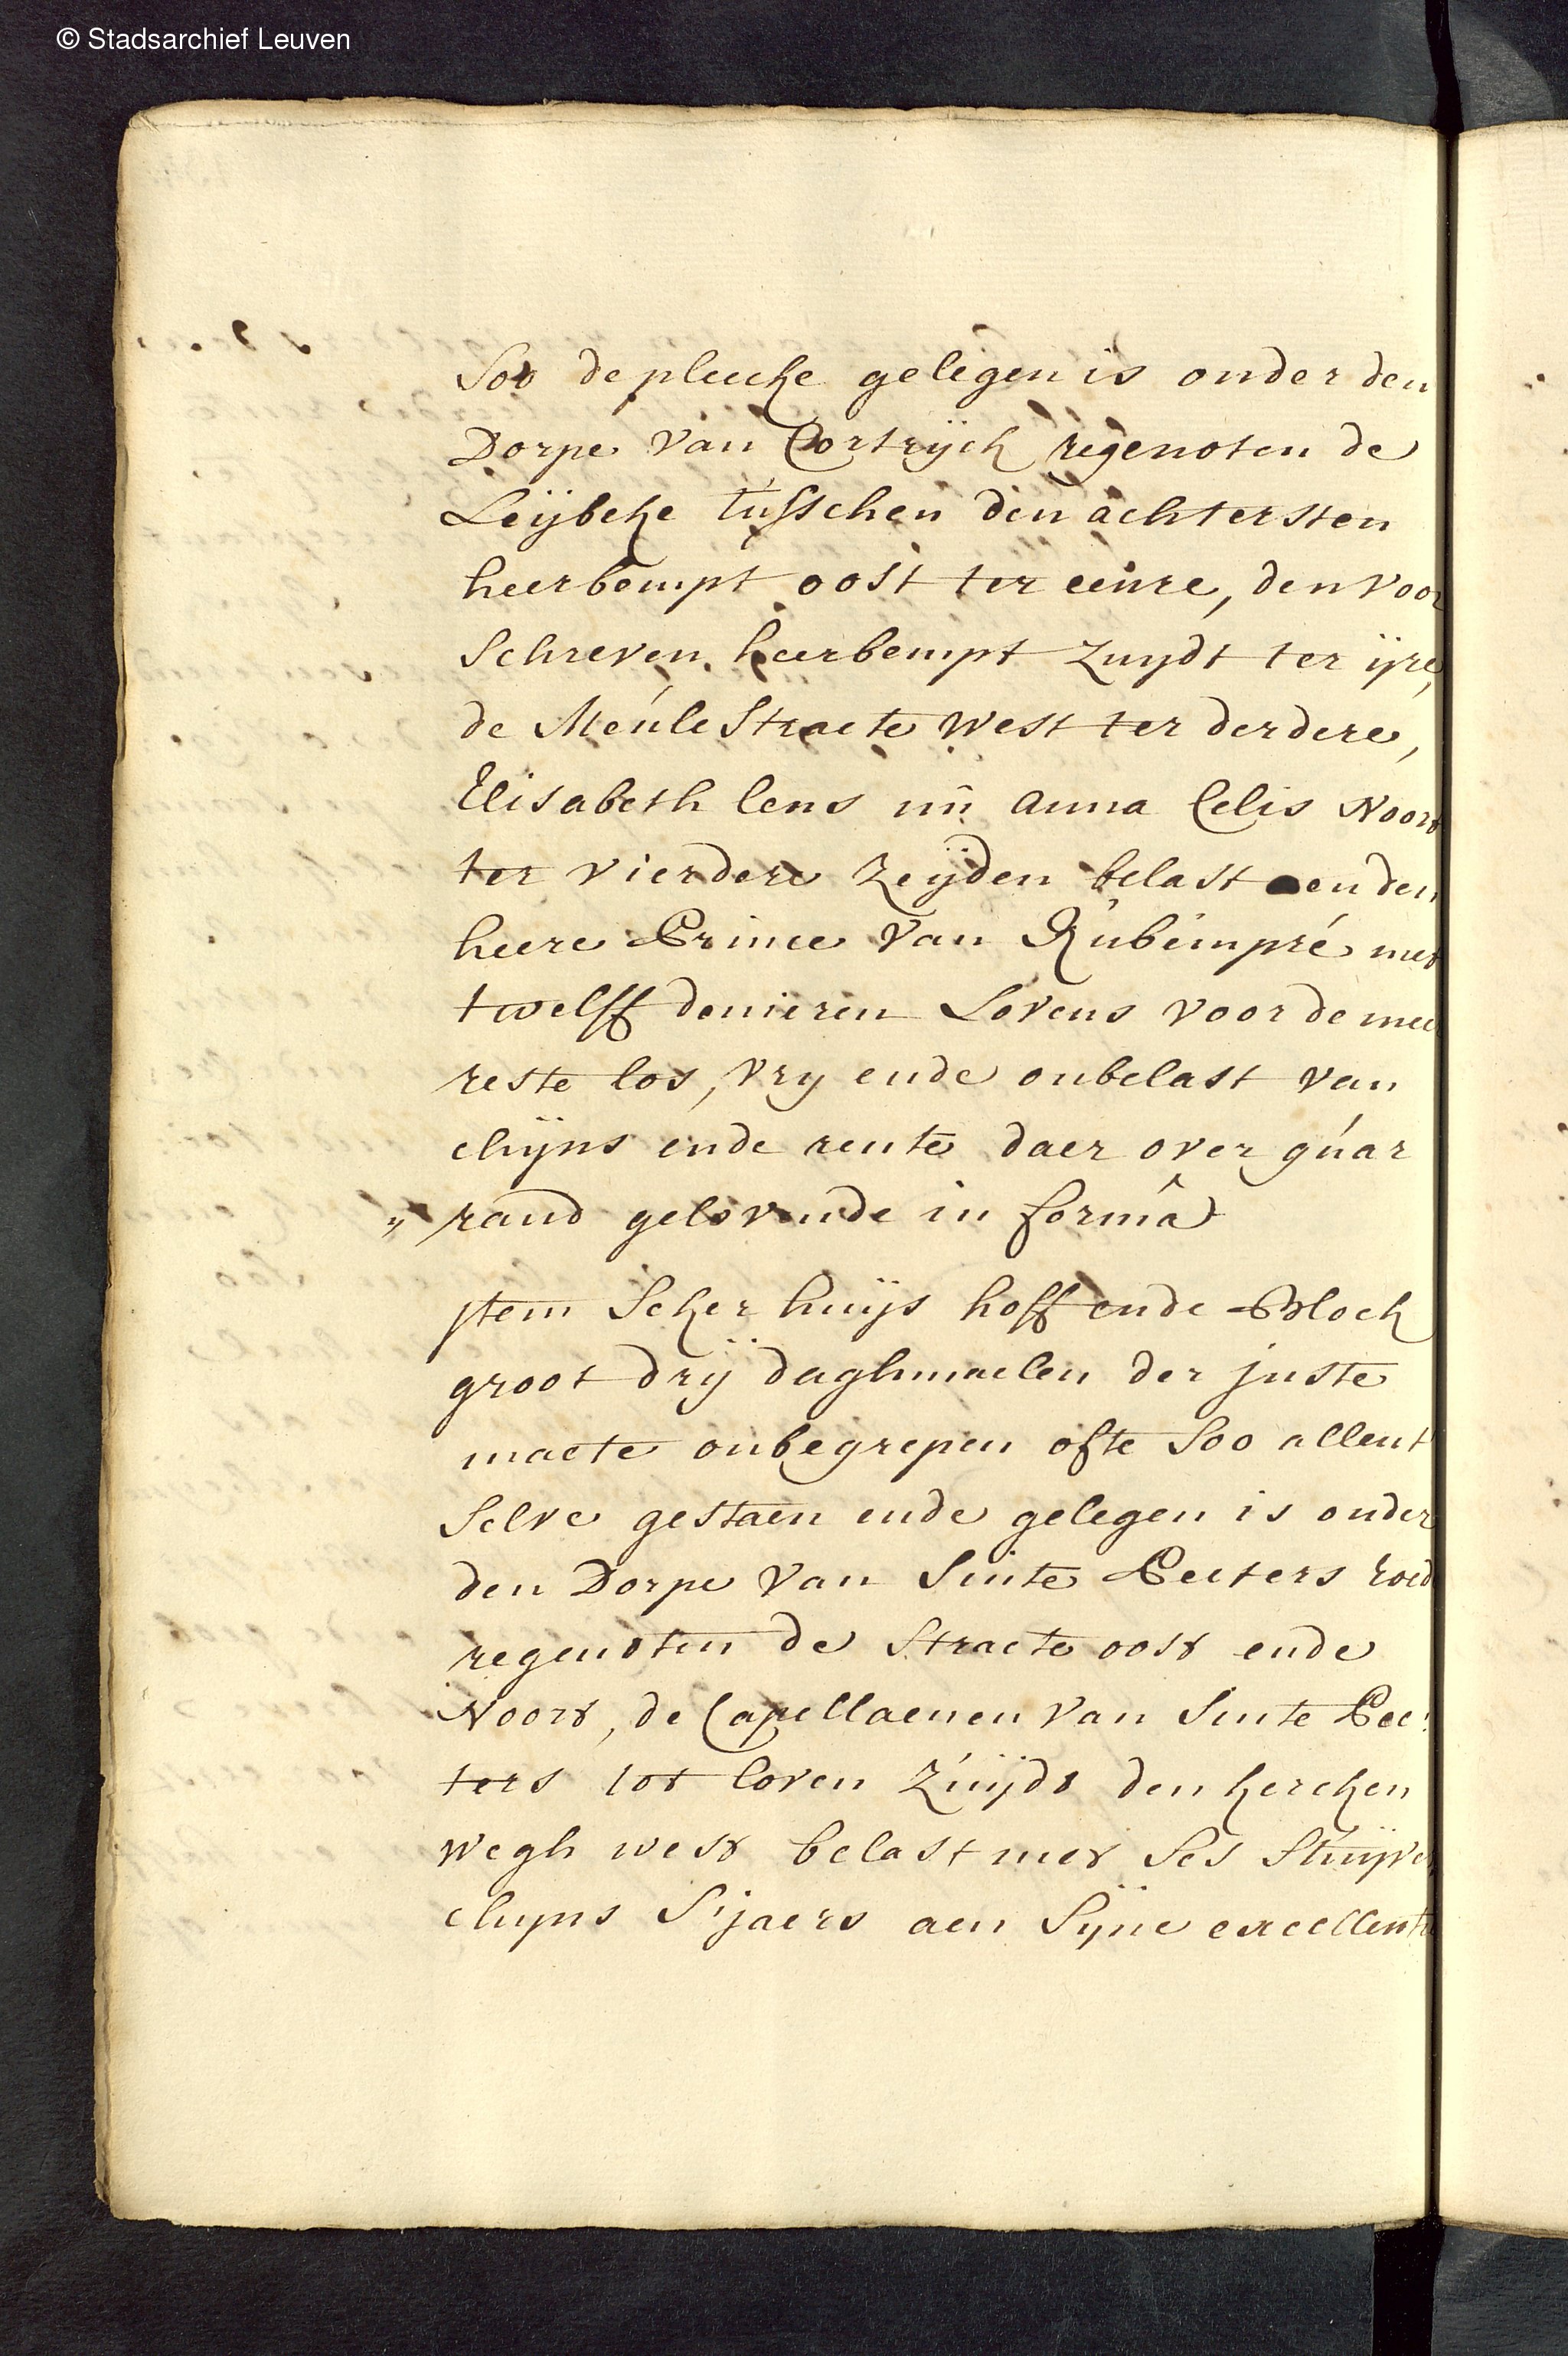 © Stadsarchief Leuven
Soo de plecke gelegen is onder den
Dorpe van Cortryck regenoten de
Leijbeke tusschen den achtersten
heerbempt oost ter eenre, den voor
schreven heerbempt zuydt ter ijre,
de Meulestraete west ter derdere,
Elisabeth lens nu Anna Celis Noord
ter vierdere zeijden belast aen den
heere Prince van Rubempré met
twelff denieren Lovens voor de mee
reste los, vry ende onbelast van
chijns ende rente daer over guar
rand gelovende in formâ
Item seker huijs hoff ende Block
groot drij daghmaelen der juste
maete onbegrepen ofte soo allent
selve gestaen ende gelegen is onder
den Dorpe van Sinte Peeters rode
regenoten de straete oost ende
Noort, de Capellaenen van Sinte Pee:
ters tot loven zuijdt den kercken
wegh west belast met ses stuijven
chijns s'jaers aen syne excellentie